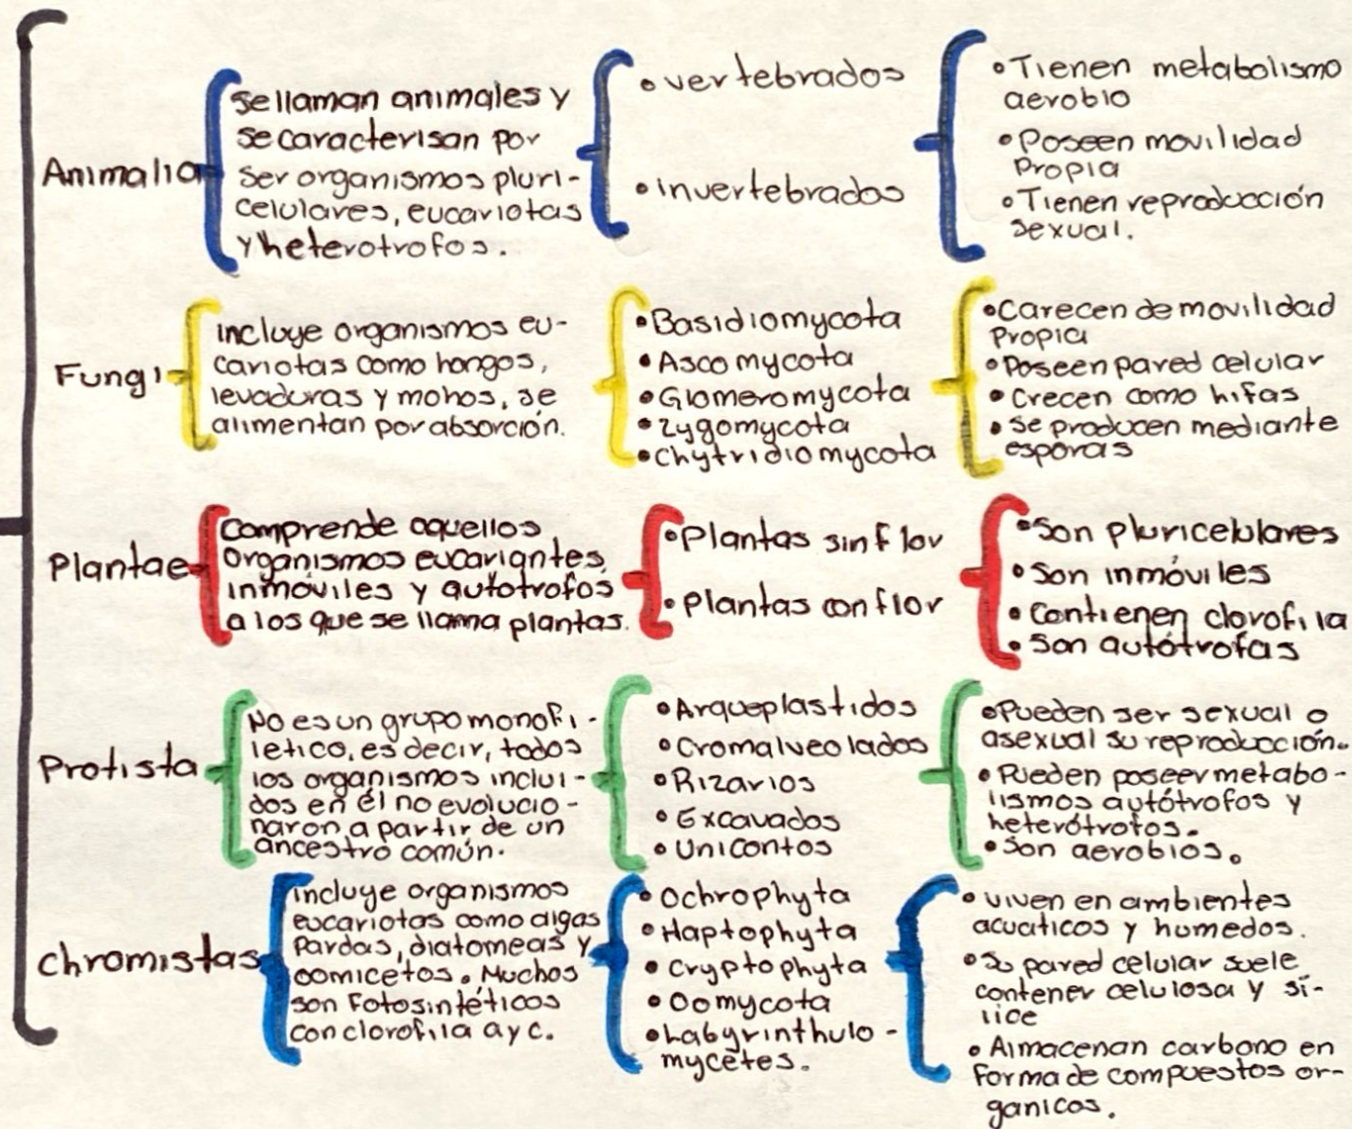 Animalia
se llaman animales y
se caracterisan por
ser organismos pluri-
celulares, eucariotas
y heterotrofos.
• vertebrados
• invertebrados
• Tienen metabolismo
aerobio
• Poseen movilidad
Propia
• Tienen reproducción
sexual.
Fungi
incluye organismos eu-
cariotas como hongos,
levaduras y mohos, se
alimentan por absorción.
• Basidiomycota
• Ascomycota
• Glomeromycota
• zygomycota
• Chytridiomycota
• Carecen de movilidad
Propia
• Poseen pared celular
• Crecen como hifas
• se producen mediante
esporas
Plantae
Comprende aquellos
organismos eucariontes,
inmóviles y autótrofos
a los que se llama plantas.
• Plantas sin flor
• Plantas con flor
• Son pluricelulares
• Son inmóviles
• Contienen clorofila
• Son autótrofas
Protista
No es un grupo monofi-
letico, es decir, todos
los organismos inclui-
dos en él no evolucio-
naron a partir de un
ancestro común.
• Arqueplastidos
• Cromalveolados
• Rizarios
• Excavados
• Unicontos
• Pueden ser sexual o
asexual su reproducción.
• Pueden poseer metabo-
lismos autótrofos y
heterótrofos.
• Son aerobios.
Chromistas
incluye organismos
eucariotas como algas
Pardas, diatomeas y
oomicetos. Muchos
son fotosintéticos
con clorofila a y c.
• Ochrophyta
• Haptophyta
• Cryptophyta
• Oomycota
• Labyrinthulo-
mycetes.
• viven en ambientes
acuaticos y humedos.
• Su pared celular suele
contener celulosa y sí-
lice
• Almacenan carbono en
forma de compuestos or-
ganicos.